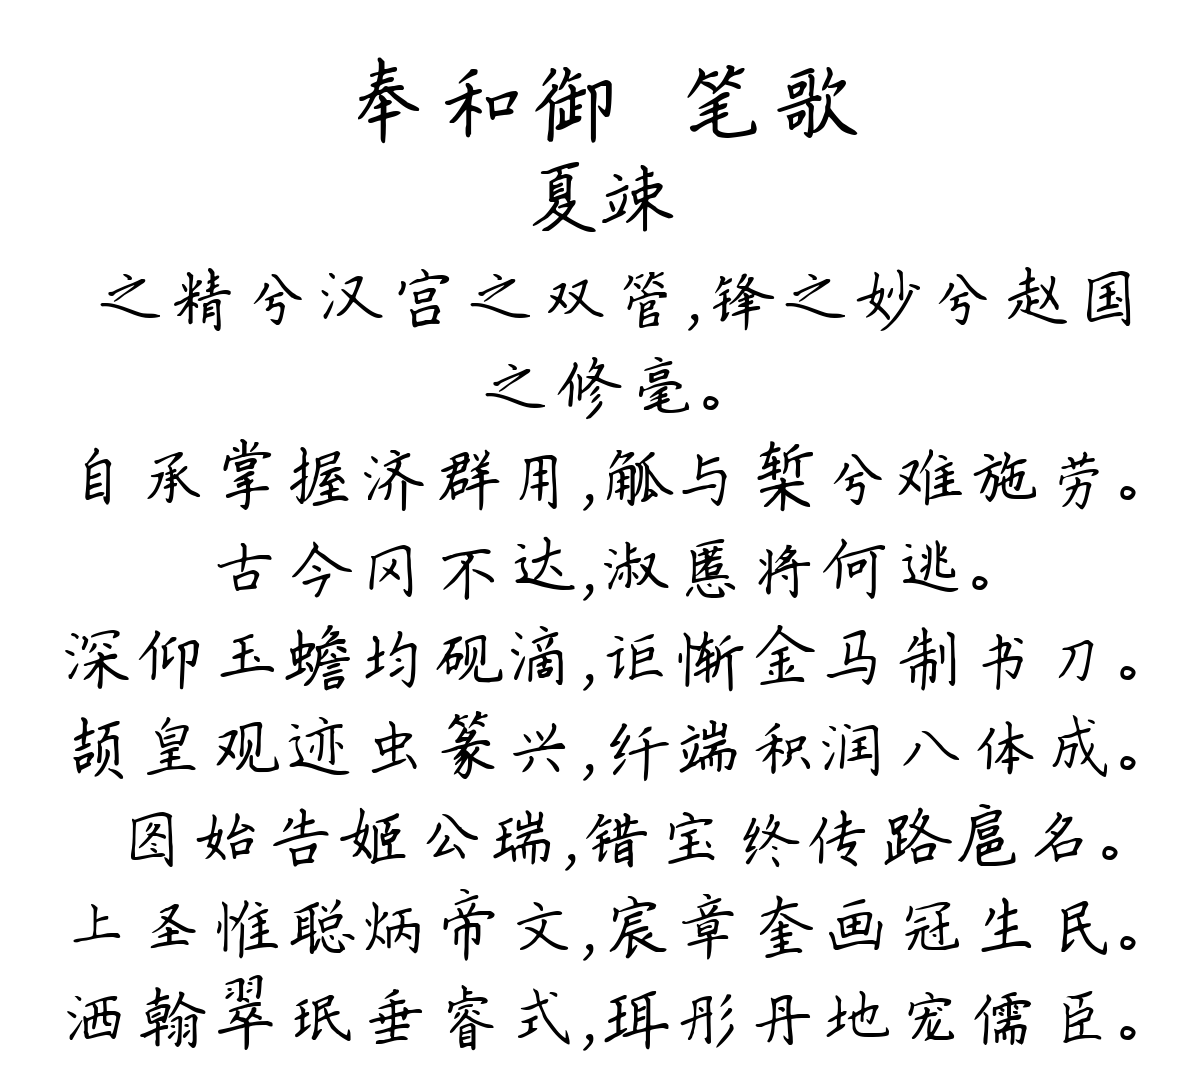 奉和御 笔歌
夏竦
之精兮汉宫之双管,锋之妙兮赵国
之修毫。
自承掌握济群用,觚与椠兮难施劳。
古今冈不达,淑慝将何逃。
深仰玉蟾均砚滴,讵惭金马制书刀。
颉皇观迹虫篆兴,纤端积润八体成。
图始告姬公瑞,错宝终传路扈名。
上圣惟聪炳帝文,宸章奎画冠生民。
洒翰翠珉垂睿式,珥彤丹地宠儒臣。